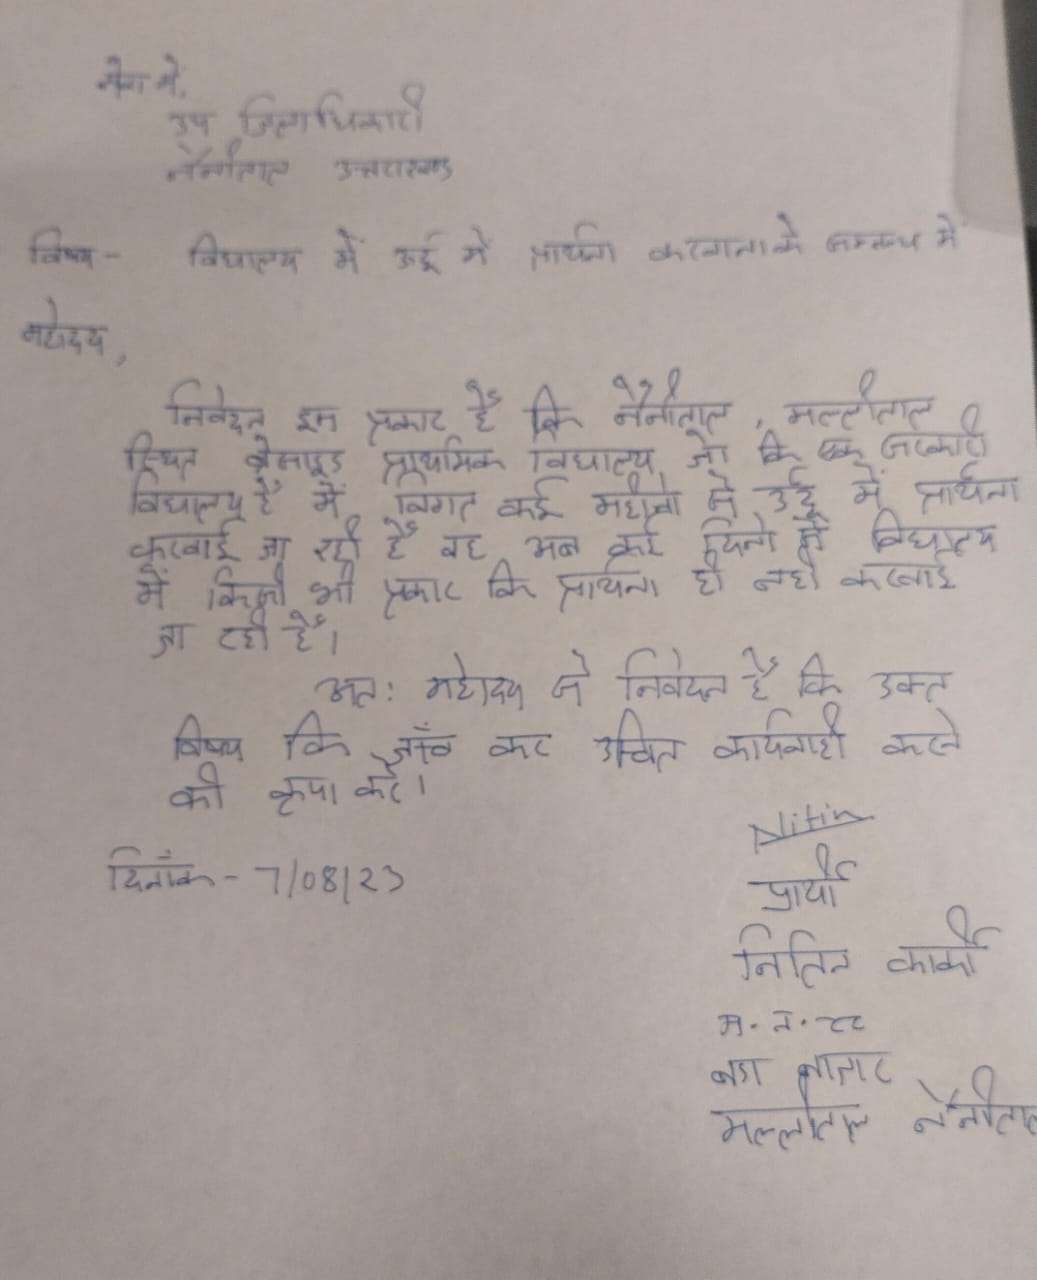 सेवा में,
उप जिलाधिकारी
नैनीताल उत्तराखण्ड
विषय - विघालय में उर्दू में प्रार्थना करवाना के सम्बन्ध में
महोदय,
निवेदन इस प्रकार है कि नैनीताल, मल्लीताल
स्थित प्राथमिक विघालय जो कि एक सरकारी
विघालय है में विगत कई महीनो से उर्दू में प्रार्थना
करवाई जा रही है वह अब कई दिनो से विघालय
में किसी भी प्रकार कि प्रार्थना ही नही करवाई
जा रही है।
अत: महोदय से निवेदन है कि उक्त
विषय कि जाँच कर उचित कार्यवाही करने
की कृपा करे।
Nitin
दिनाँक - 7/08/23
प्रार्थी
नितिन कार्की
म. न.
बडा बाजार
मल्लीताल नैनीताल